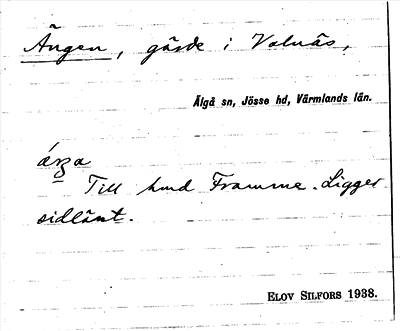 Ängen, gärde i Valnäs,
Älgå sn, Jösse hd, Värmlands län.
Till hmd Framme. Ligger
sidlänt.
ELOV SILFORS 1938.